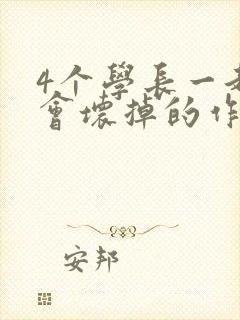 4个學長一
會壞掉的作
安邦